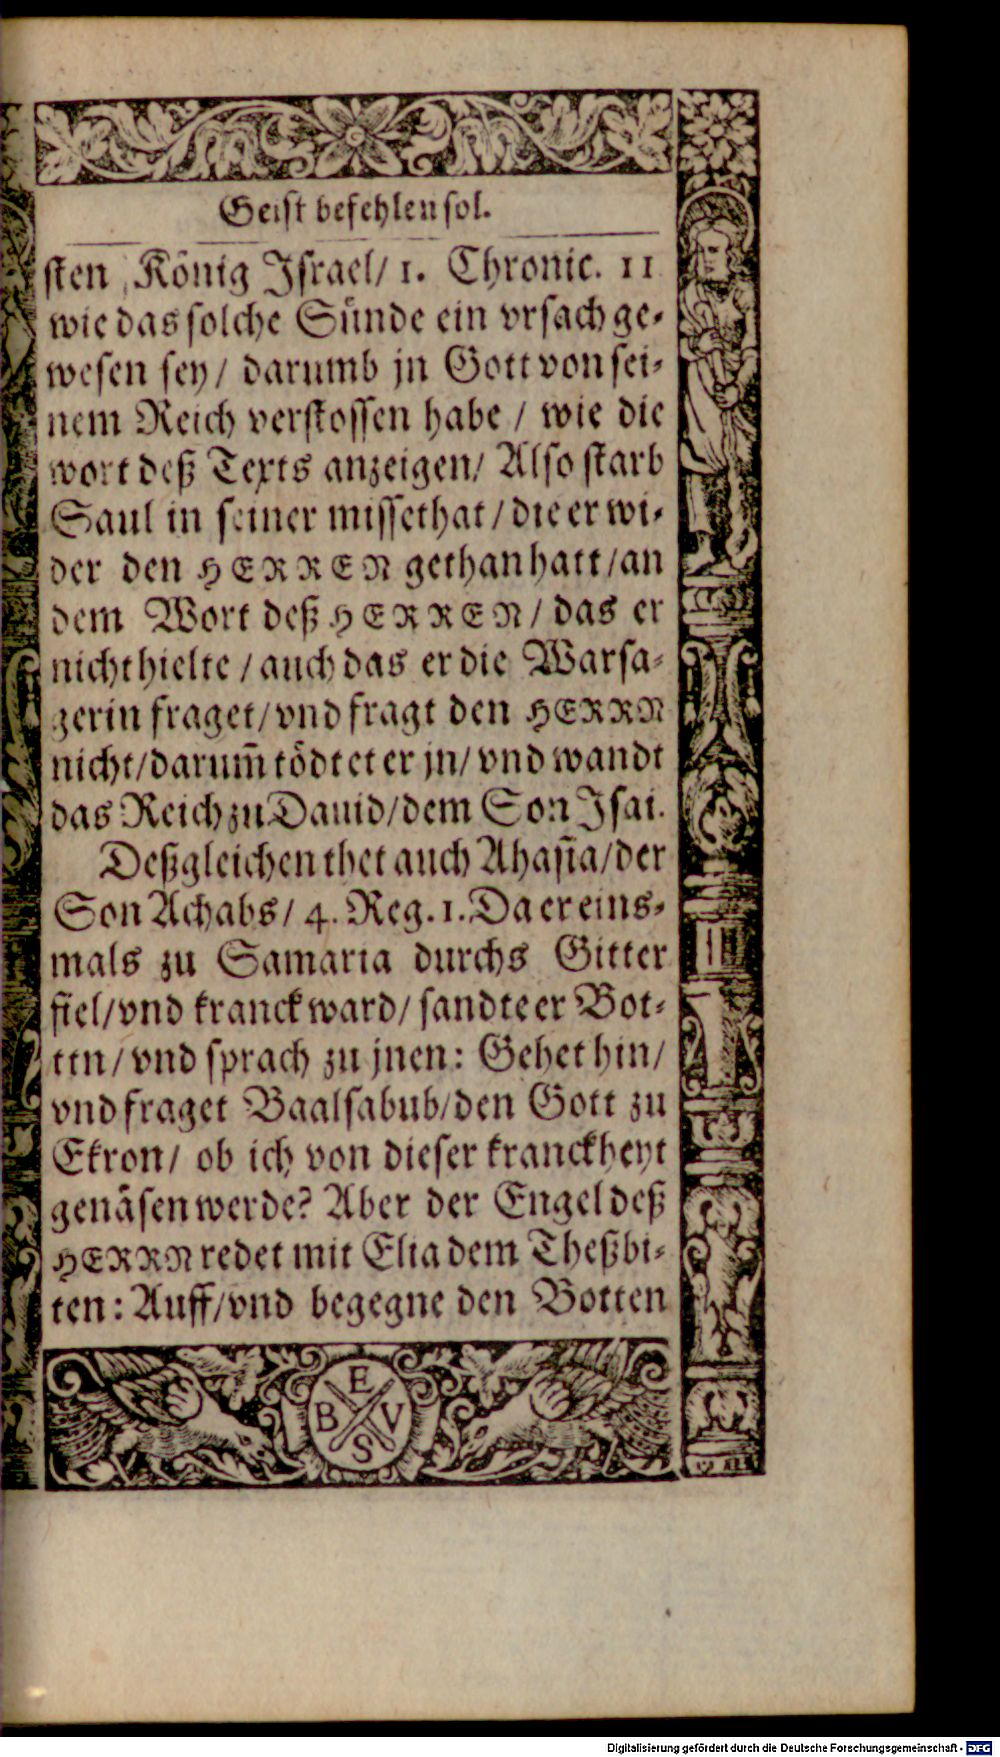 Geist befehlen sol.
sten König Israel/ 1. Chronic. 11
wie das solche Sünde ein vrsach ge-
wesen sey/ darumb jn Gott von sei-
nem Reich verstossen habe/ wie die
wort deß Texts anzeigen/ Also starb
Saul in seiner missethat/ die er wi-
der den HERREN gethan hatt/ an
dem Wort deß HERREN/ das er
nicht hielte/ auch das er die Warsa-
gerin fraget/ vnd fragt den HERRN
nicht/ darum̃ tödtet er jn/ vnd wandt
das Reich zu Dauid/ dem Son Isai.
Deßgleichen thet auch Ahasia/ der
Son Achabs/ 4. Reg. 1. Da er eins-
mals zu Samaria durchs Gitter
fiel/ vnd kranck ward/ sandte er Bot-
ten/ vnd sprach zu jnen: Gehet hin/
vnd fraget Baalsabub/ den Gott zu
Ekron/ ob ich von dieser kranckheyt
genäsen werde? Aber der Engel deß
HERRN redet mit Elia dem Theßbi-
ten: Auff/ vnd begegne den Botten
E
B V
S
Digitalisierung gefördert durch die Deutsche Forschungsgemeinschaft - DFG